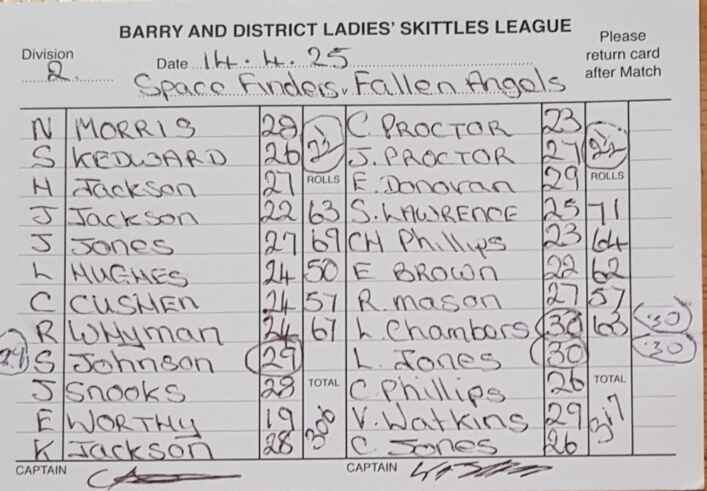 BARRY AND DISTRICT LADIES' SKITTLES LEAGUE
Division 2. Date 14.4.25 Please return card after Match
Space Finders v Fallen Angels
N MORRIS 28 C. PROCTOR 23
S KEDWARD 26 J. PROCTOR 27
H Jackson 27 ROLLS E. Donovan 29 ROLLS
J Jackson 22 63 S. LAWRENCE 25 71
J Jones 27 69 CH Phillips 23 64
L HUGHES 24 50 E BROWN 22 62
C CUSHEN 24 57 R. mason 27 57
R WHyman 24 67 L. Chambers 30 63 30
29 S Johnson 29 L. Jones 30 30
J Snooks 28 TOTAL C. Phillips 26 TOTAL
E WORTHY 19 306 V. Watkins 29 317
K Jackson 28 C. Jones 26
CAPTAIN CAPTAIN